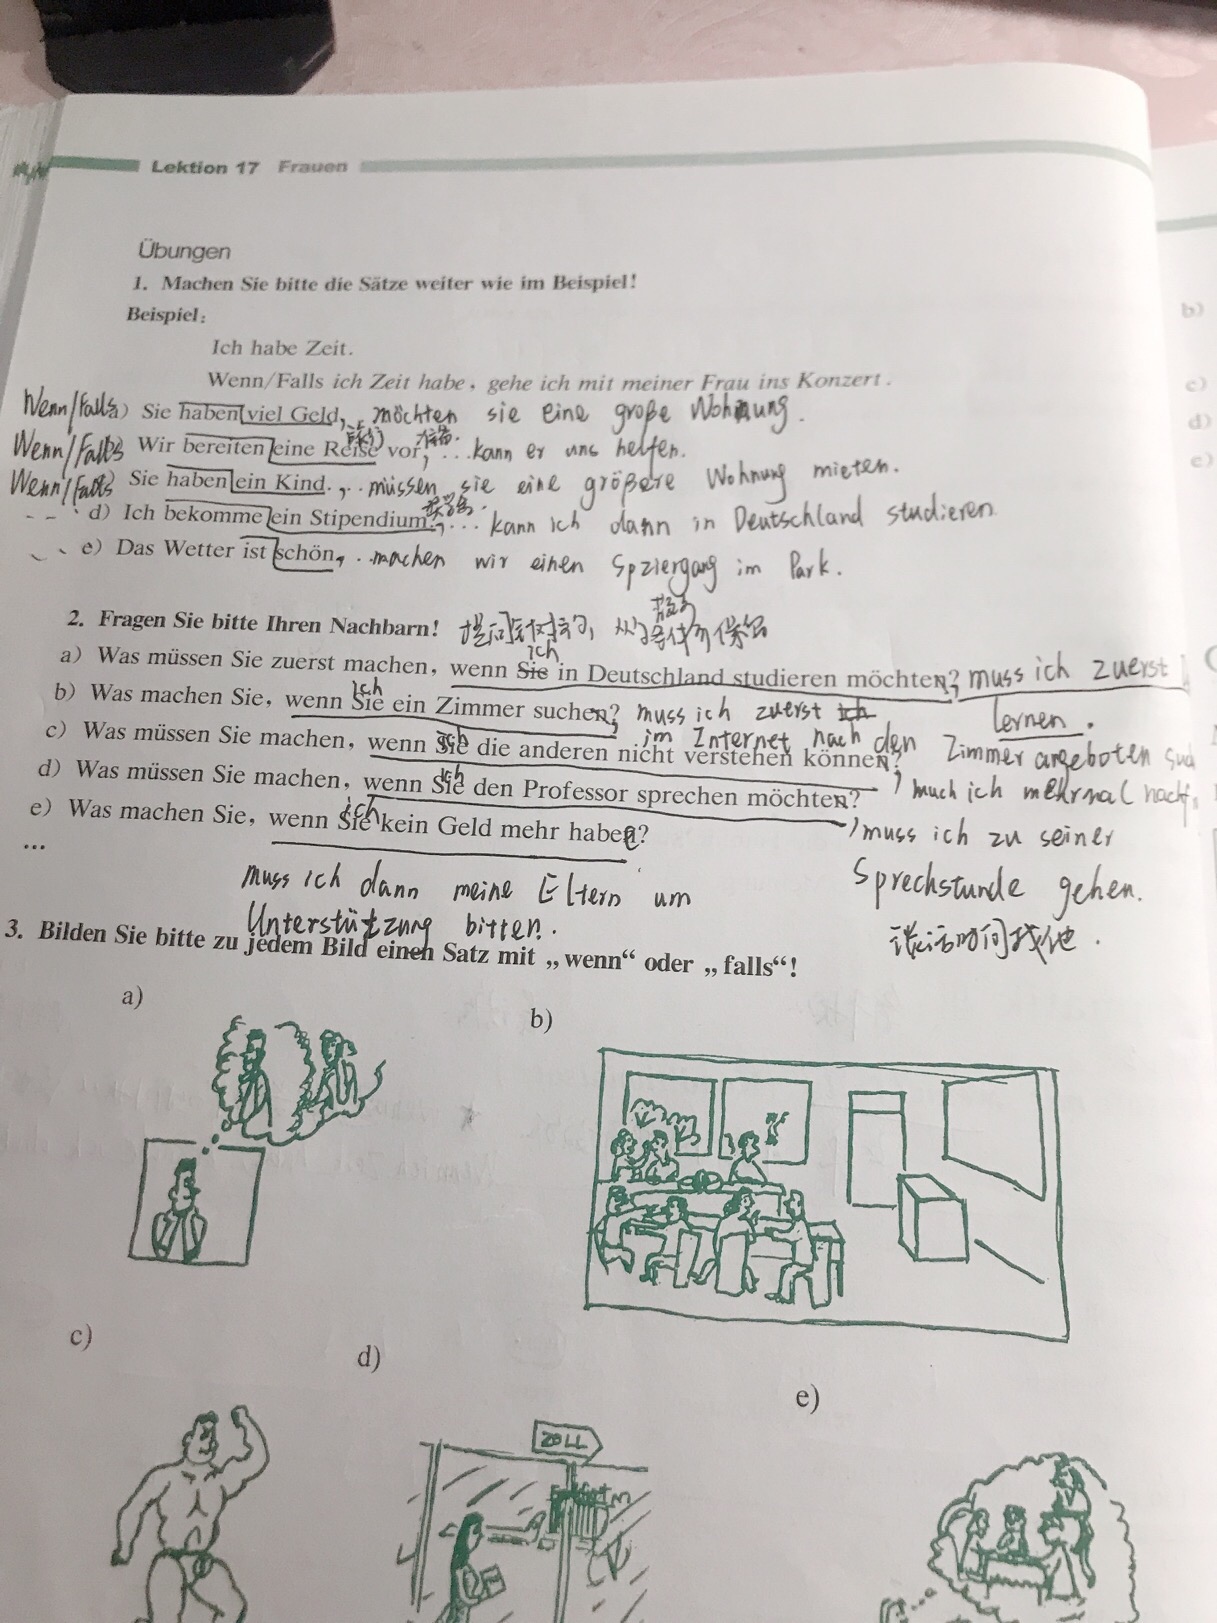 Lektion 17 Frauen
Übungen
1. Machen Sie bitte die Sätze weiter wie im Beispiel!
Beispiel:
Ich habe Zeit.
Wenn/Falls ich Zeit habe, gehe ich mit meiner Frau ins Konzert.
Wenn/Falls a) Sie haben viel Geld, möchten sie eine große Wohnung.
Wenn/Falls Wir bereiten eine Reise vor, ... kann er uns helfen.
Wenn/Falls Sie haben ein Kind. ... müssen sie eine größere Wohnung mieten.
d) Ich bekomme ein Stipendium, ... kann ich dann in Deutschland studieren
e) Das Wetter ist schön, .. machen wir einen Spziergang im Park.
2. Fragen Sie bitte Ihren Nachbarn!
ich
a) Was müssen Sie zuerst machen, wenn Sie in Deutschland studieren möchten? muss ich zuerst
lernen.
ich
b) Was machen Sie, wenn Sie ein Zimmer suchen? muss ich zuerst ich
im Internet nach den Zimmerangeboten
ich
c) Was müssen Sie machen, wenn Sie die anderen nicht verstehen können?, much ich mehrmal
ich
d) Was müssen Sie machen, wenn Sie den Professor sprechen möchten?, muss ich zu seiner
Sprechstunde gehen.
ich
e) Was machen Sie, wenn Sie kein Geld mehr haben?
...
muss ich dann meine Eltern um
Unterstützung bitten.
3. Bilden Sie bitte zu jedem Bild einen Satz mit „wenn“ oder „falls“!
a)
b)
c)
d)
ZOLL
e)
b)
c)
d)
e)